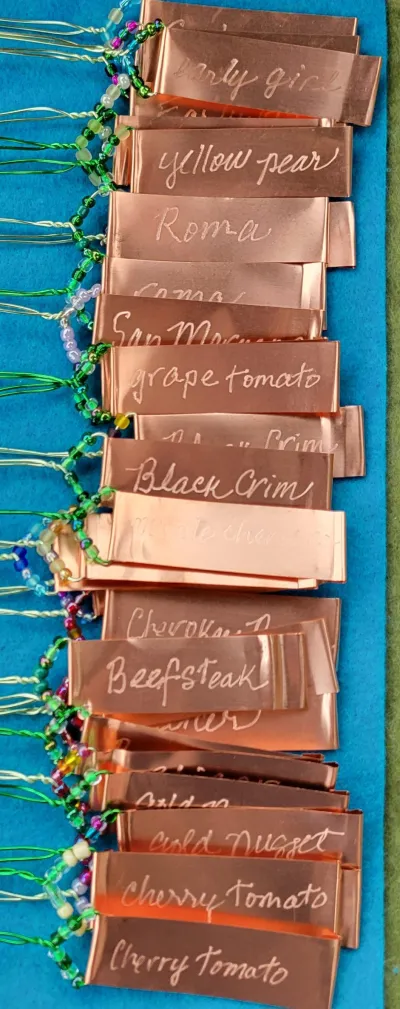 early girl
yellow pear
Roma
roma
San Mar
grape tomato
Black Crim
Black Crim
Cherokee
Beefsteak
gold n
gold nugget
cherry tomato
Cherry tomato